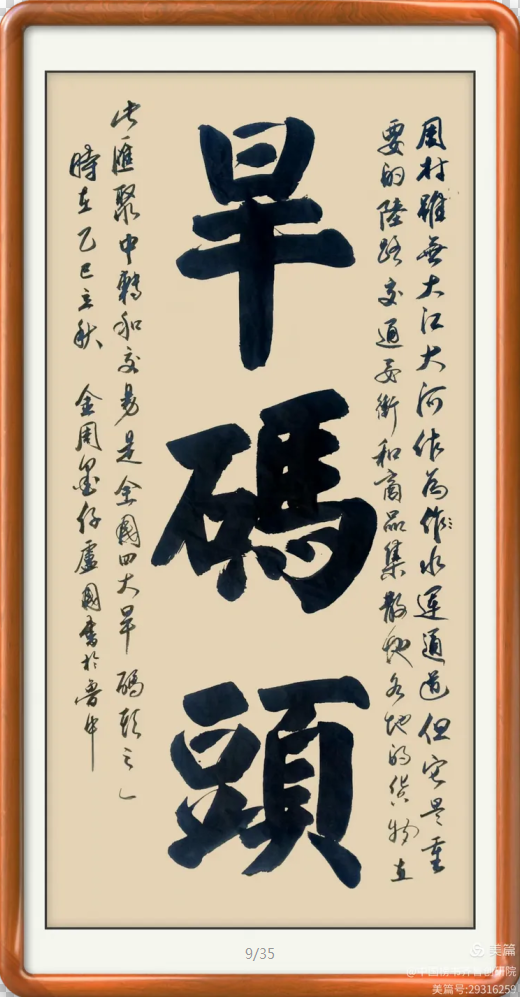 周村雖無大江大河作為作水運通道但它是重
要的陸路交通要衝和商品集散地各地的貨物在
旱碼頭
此匯聚中轉和交易是全國四大旱碼頭之一
時在乙巳立秋 金周墨仔盧國書於魯中
9/35
美篇
美篇号:29316259